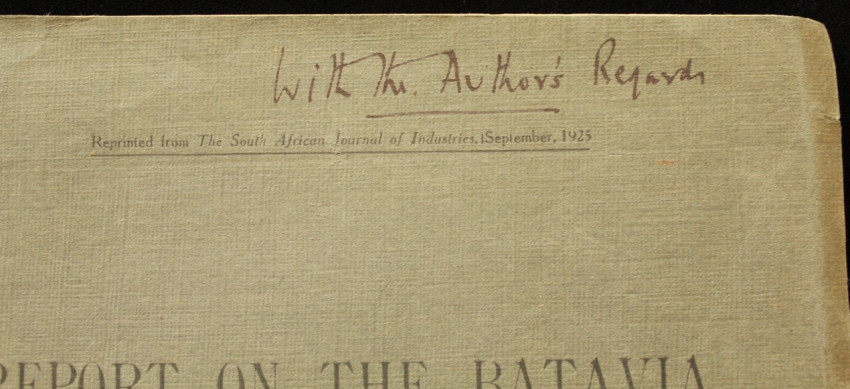 With the Author's Regards
Reprinted from The South African Journal of Industries, September, 1925
REPORT ON THE BATAVIA